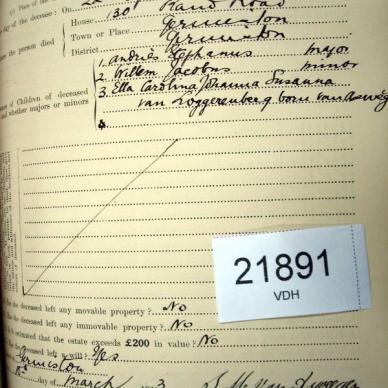 (c) Place of the
day of the decease: On
House 130 Rand Road
Town or Place Germiston
District Germiston
the person died
1. Andries Stephanus major
2. Willem Jacobus minor
3. Ella Carolina Johanna Susanna
van Roggerenberg born van
es of Children of deceased
nd whether majors or minors
4.
21891
VDH
the deceased left any movable property? No
the deceased left any immovable property? No
is estimated that the estate exceeds £200 in value? No
deceased left a will? Yes
Germiston
day of March 3